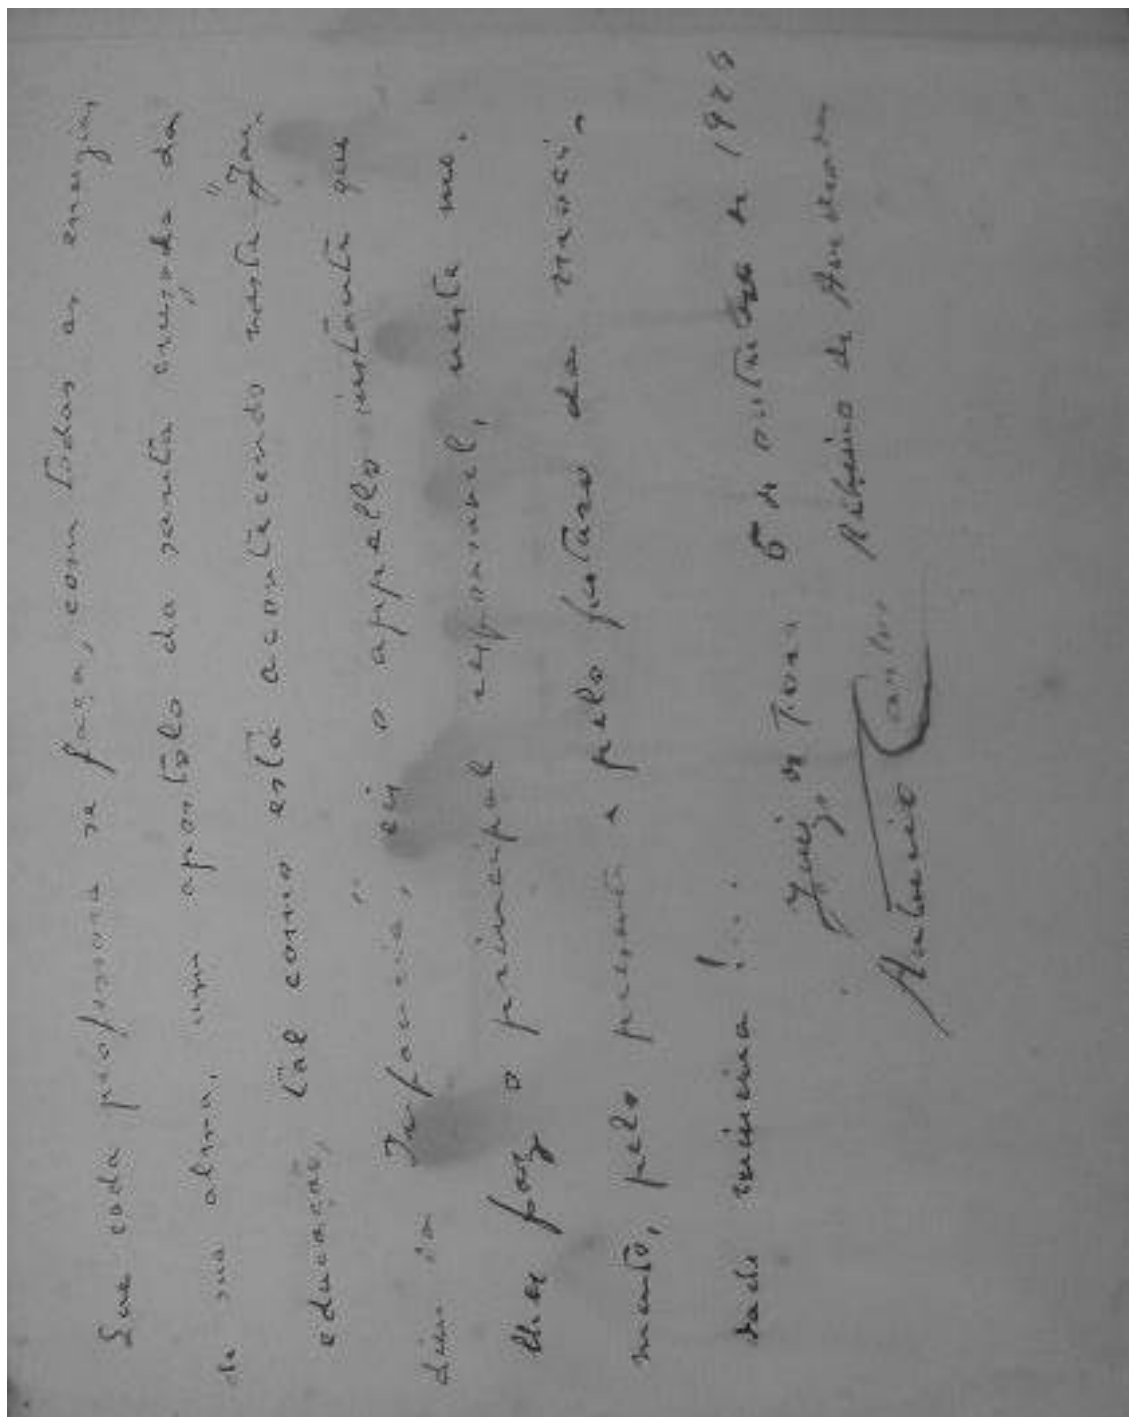 Que cada professora se faça, com todas as energias
de sua alma, um apostolo da santa cruzada da
educação, tal como está acontecendo neste "Jar-
dim da Infancia", eis o appello instante que
lhes faz o principal responsavel, neste mo-
mento, pelo presente e pelo futuro da moci-
dade mineira!..
Juiz de Fora 5 de outubro de 192
Antonio Carlos Ribeiro de Andrada